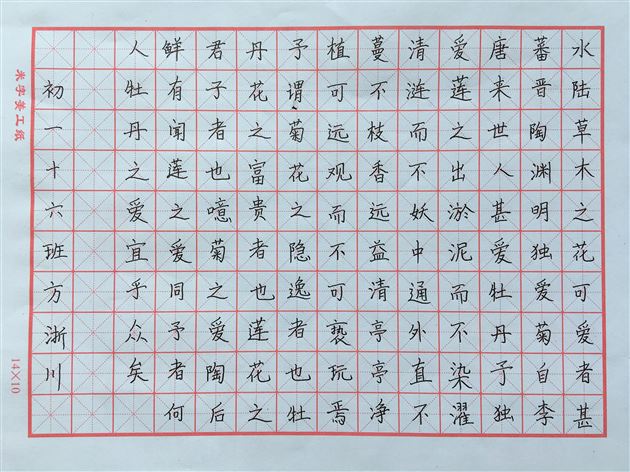 水陆草木之花可爱者甚
蕃晋陶渊明独爱菊自李
唐来世人甚爱牡丹予独
爱莲之出淤泥而不染濯
清涟而不妖中通外直不
蔓不枝香远益清亭亭净
植可远观而不可亵玩焉
予谓菊花之隐逸者也牡
丹花之富贵者也莲花之
君子者也噫菊之爱陶后
鲜有闻莲之爱同予者何
人牡丹之爱宜乎众矣
初一十六班方浙川
米字美工纸
14×10